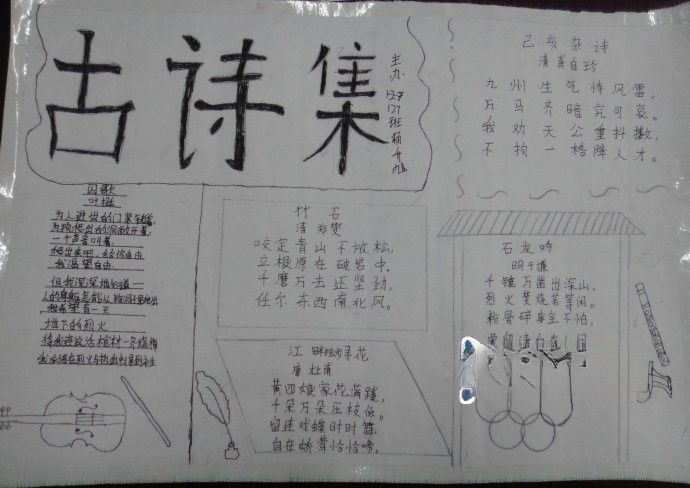 古诗集
主办
127
127班
囚歌
叶挺
为人进出的门紧锁着,
为狗爬出的洞敞开着,
一个声音叫着
爬出来吧,给你自由
我渴望自由
但我深深地知道—
人的身躯怎能从狗洞子里爬出
我希望有一天
地下的烈火
将我连这活棺材一齐烧掉
我应该在烈火与热血中得到永生
竹石
清 郑燮
咬定青山不放松,
立根原在破岩中。
千磨万击还坚劲,
任尔东西南北风。
江畔独步寻花
唐 杜甫
黄四娘家花满蹊,
千朵万朵压枝低。
留连戏蝶时时舞,
自在娇莺恰恰啼。
己亥杂诗
清 龚自珍
九州生气恃风雷,
万马齐喑究可哀。
我劝天公重抖擞,
不拘一格降人才。
石灰吟
明 于谦
千锤万凿出深山,
烈火焚烧若等闲。
粉骨碎身全不怕,